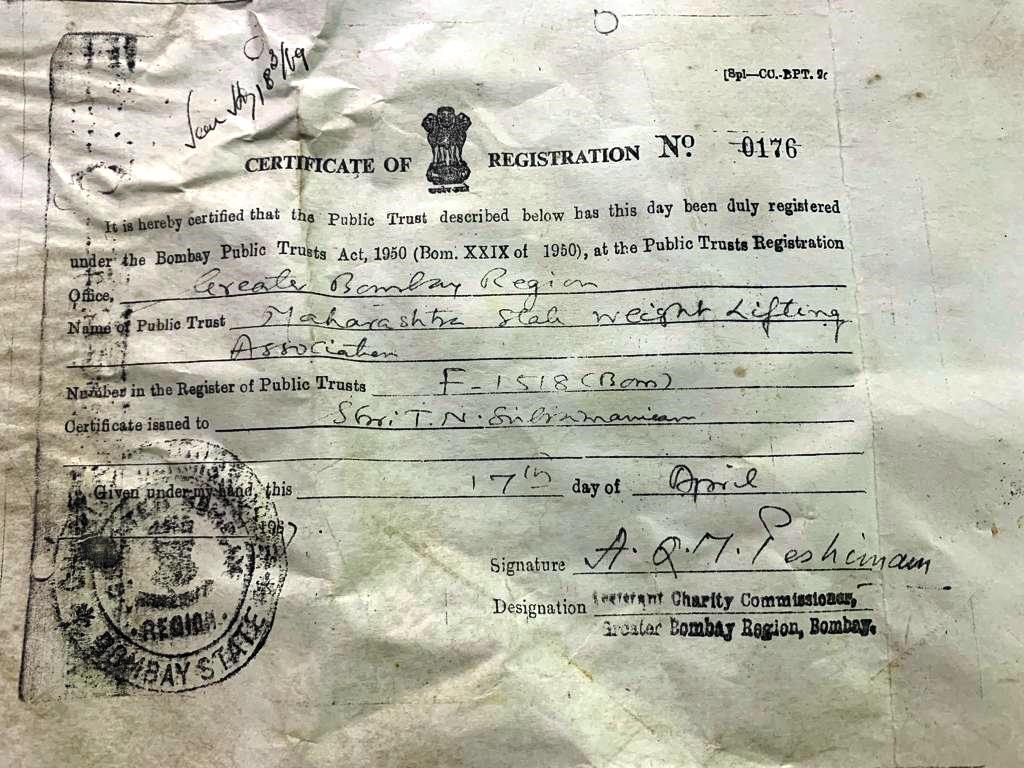 Seen 18/3/69
[Spl—CO.-BPT. 2c
CERTIFICATE OF REGISTRATION Nº 0176
सत्यमेव जयते
It is hereby certified that the Public Trust described below has this day been duly registered
under the Bombay Public Trusts Act, 1950 (Bom. XXIX of 1950), at the Public Trusts Registration
Office, Greater Bombay Region
Name of Public Trust Maharashtra State Weight Lifting
Association
Number in the Register of Public Trusts F-1518 (Bom)
Certificate issued to Shri T. N. Subramaniam
Given under my hand, this 17th day of April
1967
Signature A. Q. M. Peshimam
Designation Charity Commissioner,
Greater Bombay Region, Bombay.
REGION
BOMBAY STATE